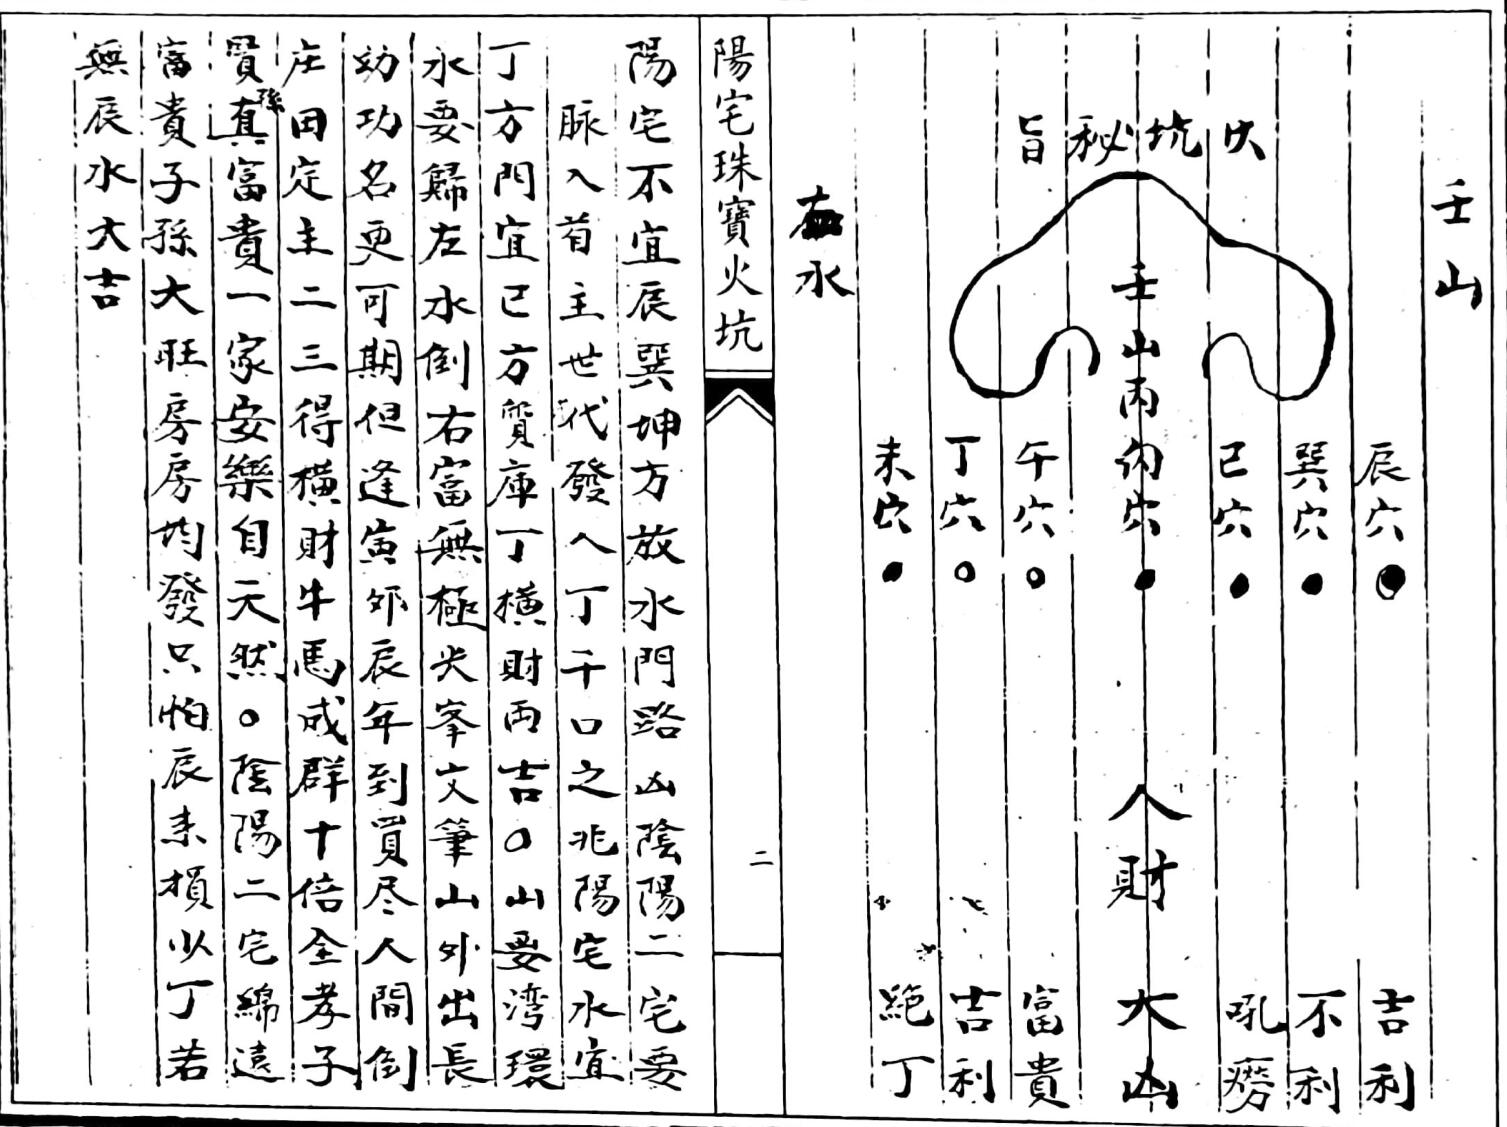 壬山
火坑秘旨
壬山丙向穴
辰穴 吉利
巽穴 不利
巳穴 吼癆
人財大凶
午穴 富貴
丁穴 吉利
未穴 絶丁
水
陽宅珠寶火坑
二
陽宅不宜辰巽坤方放水門路凶陰陽二宅要
脉入首主世代發人丁千口之兆陽宅水宜
丁方門宜巳方質庫丁橫財両吉○山要湾環
水要歸左水倒右富無極尖峯文筆山外出長
幼功名更可期但逢寅卯辰年到買尽人間倒
庄田定主二三得橫財牛馬成群十倍全孝子
賢孫真富貴一家安樂自天然○陰陽二宅綿遠
富貴子孫大旺房房均發只怕辰耒損少丁若
無辰水大吉